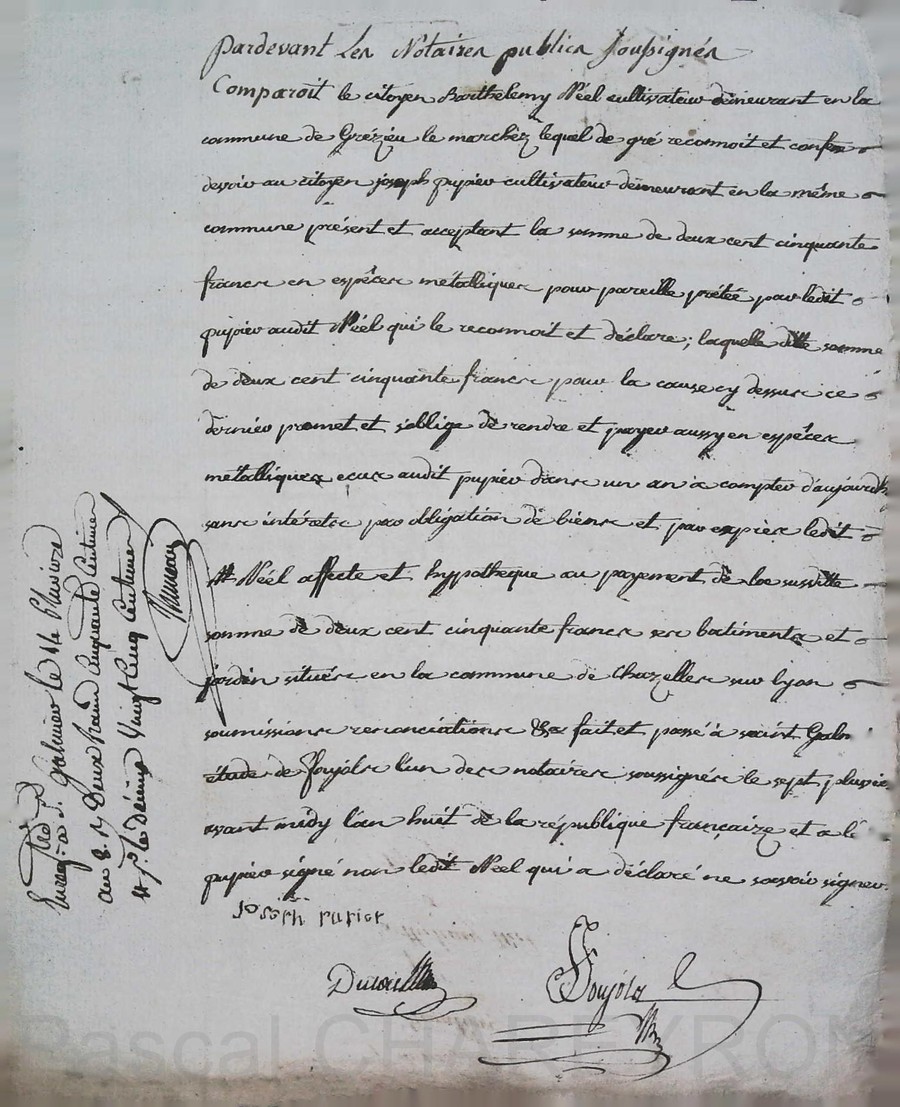 Pardevant Les Notaires publics soussignés
Comparoit le citoyen Barthelemy Néel cultivateur demeurant en la
commune de Grézieu le marché lequel de gré reconnoit et confesse
devoir au citoyen joseph pupier cultivateur demeurant en la même
commune présent et acceptant la somme de deux cent cinquante
francs en espèces métalliques pour pareille prétée par ledit
pupier audit Néel qui le reconnoit et déclare; laquelle ditte somme
de deux cent cinquante francs pour la cause cy dessus ce
dernier promet et s'oblige de rendre et payer aussy en espèces
métalliques audit pupier dans un an a compter d'aujourd'h
sans intérets par obligation de biens et par exprès ledit
Néel affecte et hypotheque au payement de la susditte
somme de deux cent cinquante francs ses batiments et
jardin situés en la commune de Chazelles sur lyon
soumissions renonciations &a fait et passé à saint Galm
étude de Soujols l'un des notaires soussignés le sept pluvio
avant midy l'an huit de la république françaize et a le
pupier signé non ledit Néel qui a déclaré ne savoir signer.
joseph pupier
Soujols
Enreg. a St. Galmier le 14 Pluviose
an 8. R Deux francs Cinquante Centimes
Vingt Cinq Centimes
Pascal CHAREYRON